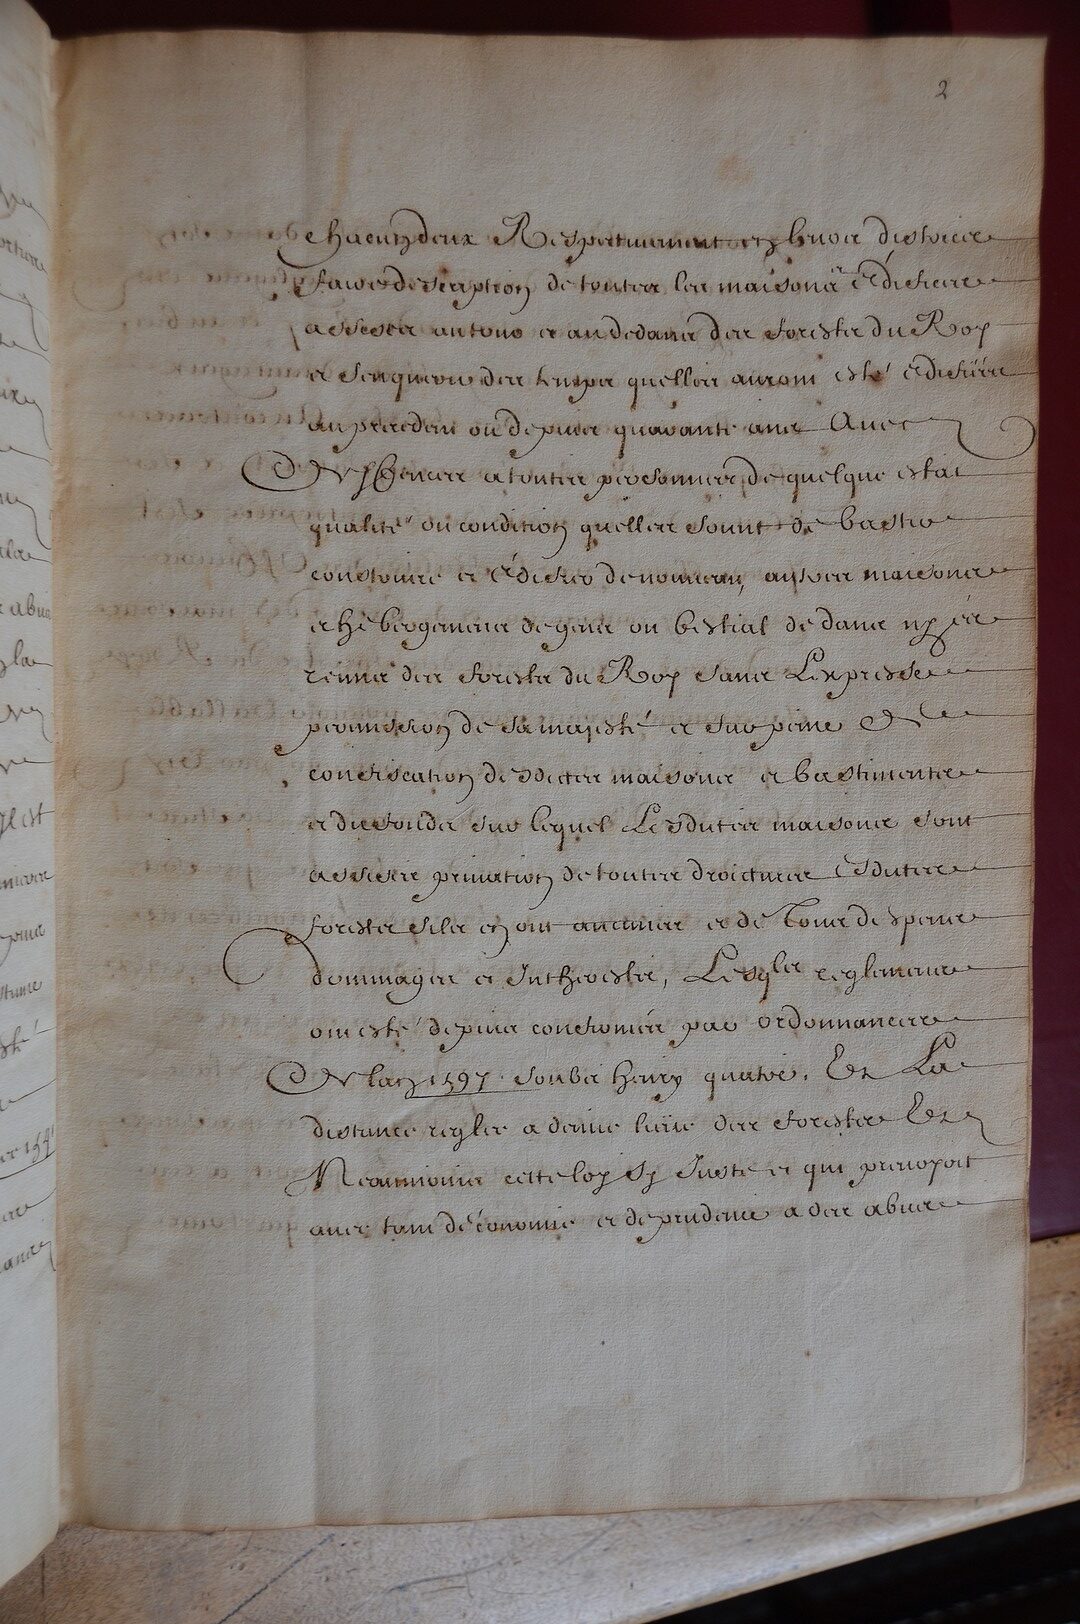 2
chacun deux Respectivement en leurs destroicts
faire description de touttes les maisons Edifiees
assises autour et au dedans des forests du Roy
et senquerir des temps quelles auront esté Edifiées
au precedent ou depuis quarante ans Avec
Deffences a touttes personnes de quelque estat
qualité ou condition quelles soient de bastir
construire et Edifier de nouveau, autres maisons
et hebergemens de gens ou bestial dedans ny és
rennes des forests du Roy sans L'expresse
permission de sa majesté et sur peine De
confiscation desdictes maisons et bastimentz
et du fondz sur lequel Lesdites maisons sont
assises privation de touttes droictures Esdites
forests sils en ont aucunes et de Tous despens
dommages et Intherests, Lesqles reglemens
ont esté depuis confirmés par ordonnances
De lan 1597. soubz henry quatre. Et La
distance reglee a demie lieüe des forests Et
Neanmoins cette loy sy Juste et qui prevoyoit
avec tant d'économie et de prudence a des abus